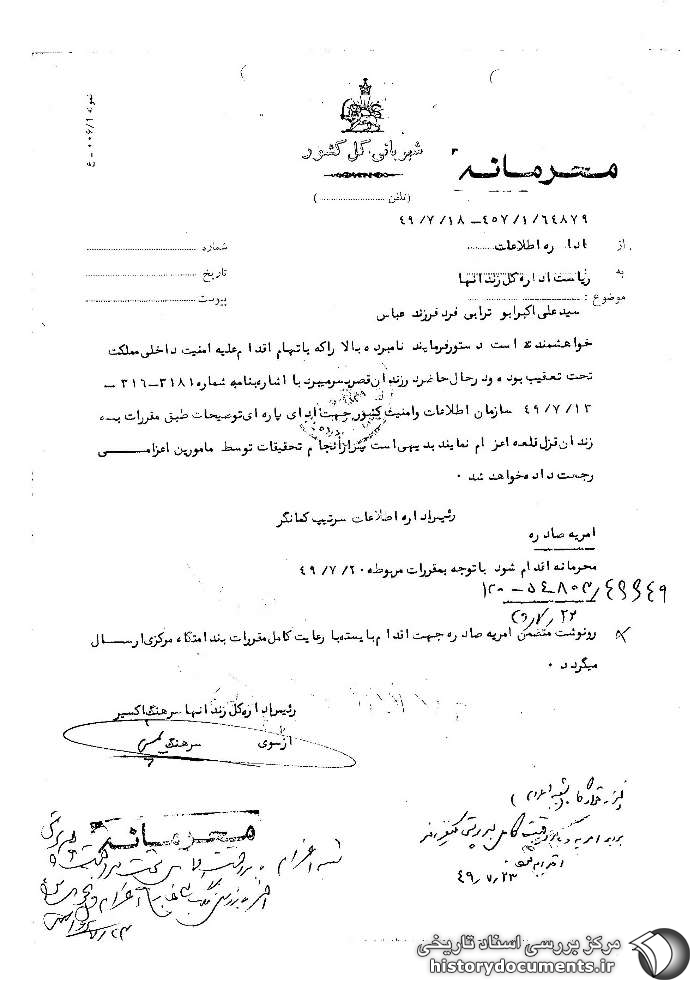 نمونه ۰۰۶/۱ - ع
شهربانی کل کشور
محرمانه
(تلفن ..................)
۴۵۷/۱/۶۴۸۷۹ - ۴۹/۷/۱۸
از اداره اطلاعات
شماره
به ریاست اداره کل زندانها
تاریخ
موضوع :
پیوست
سید علی اکبر ابو ترابی فرد فرزند عباس
خواهشمند است دستور فرمایند نامبرده بالا را که باتهام اقدام علیه امنیت داخلی مملکت
تحت تعقیب بوده و در حال حاضر در زندان قصر بسر میبرد با اشاره بنامه شماره ۳۱۸۱-۳۱۶ –
۴۹/۷/۱۳ سازمان اطلاعات و امنیت کشور جهت ادای پاره ای توضیحات طبق مقررات به
زندان قزل قلعه اعزام نمایند بدیهی است پس از انجام تحقیقات توسط مامورین اعزامی
رجعت داده خواهد شد .
رئیس اداره اطلاعات سرتیپ کمانگر
امریه صادره
محرمانه اقدام شود با توجه بمقررات مربوطه ۴۹/۷/۲۰
رونوشت متضمن امریه صادره جهت اقدام بایسته با رعایت کامل مقررات بندامتگاه مرکزی ارسال
میگردد .
رئیس اداره کل زندانها سرهنگ اکسیر
از سوی سرهنگ
۴۹/۷/۲۳
محرمانه
مرکز بررسی اسناد تاریخی
historydocuments.ir